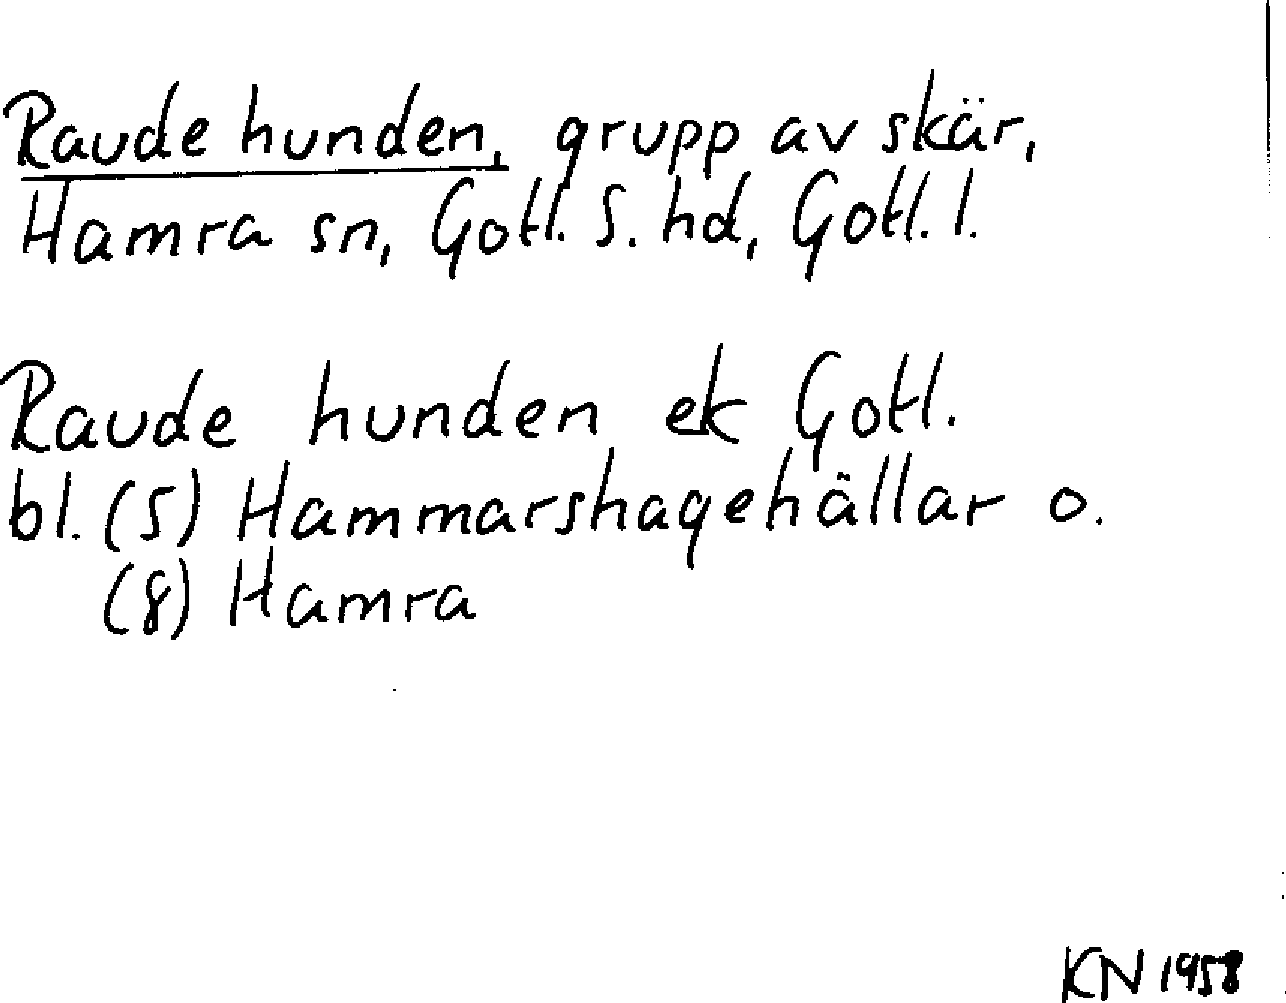 Raude hunden, grupp av skär,
Hamra sn, Gotl. S. hd, Gotl. l.
Raude hunden ek Gotl.
bl. (5) Hammarshagehällar o.
(8) Hamra
KN 1958